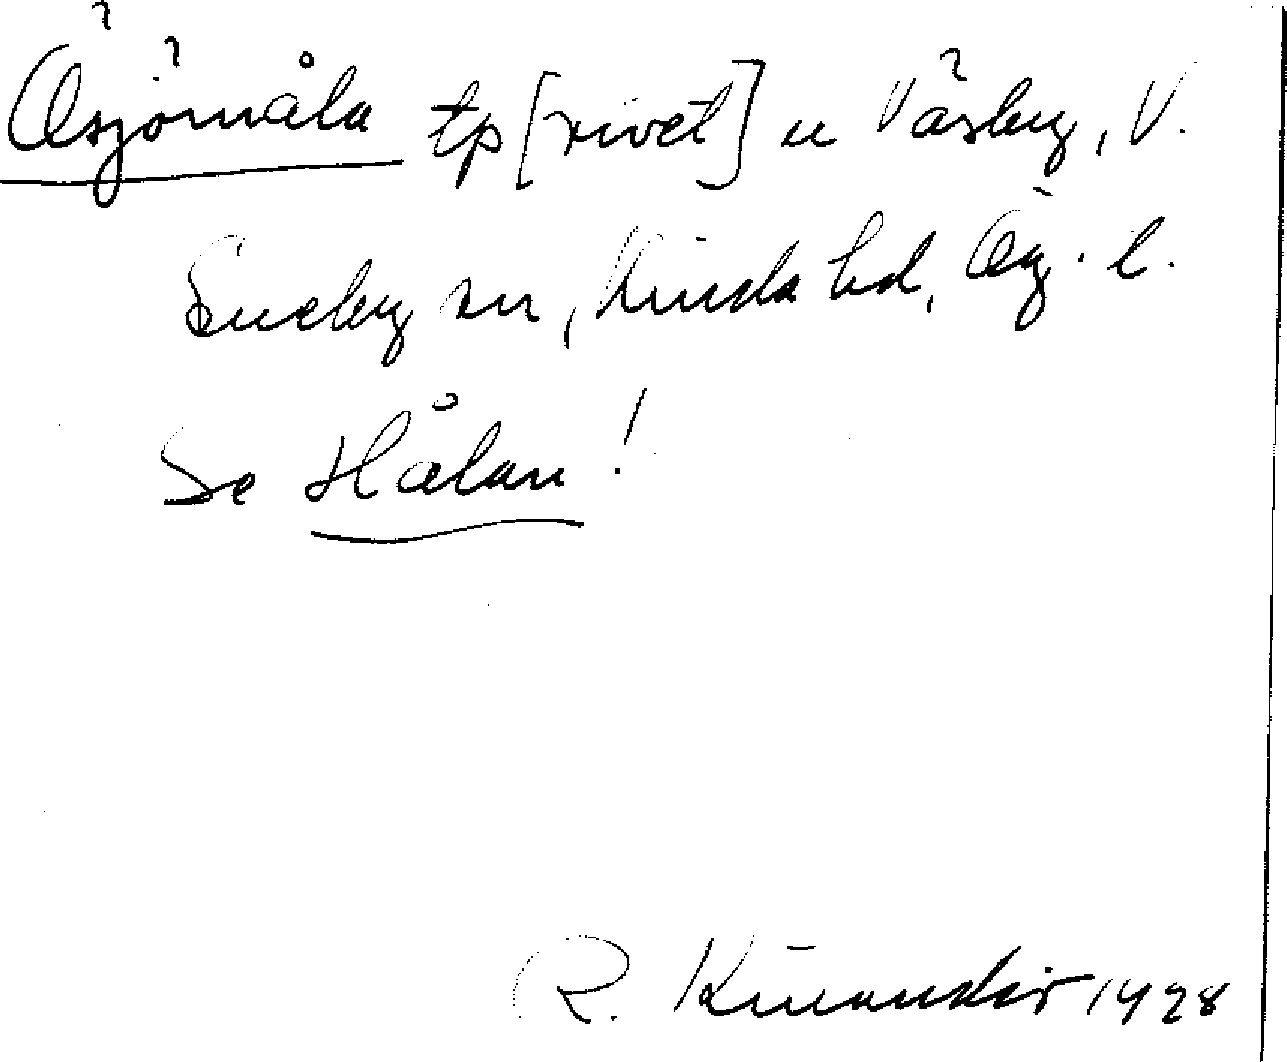 Ösjömåla tp [rivet] u Väsby, V.
Eneby sn, Kinda hd, Ög. l.
Se Hålan!
R. Kinander 1928